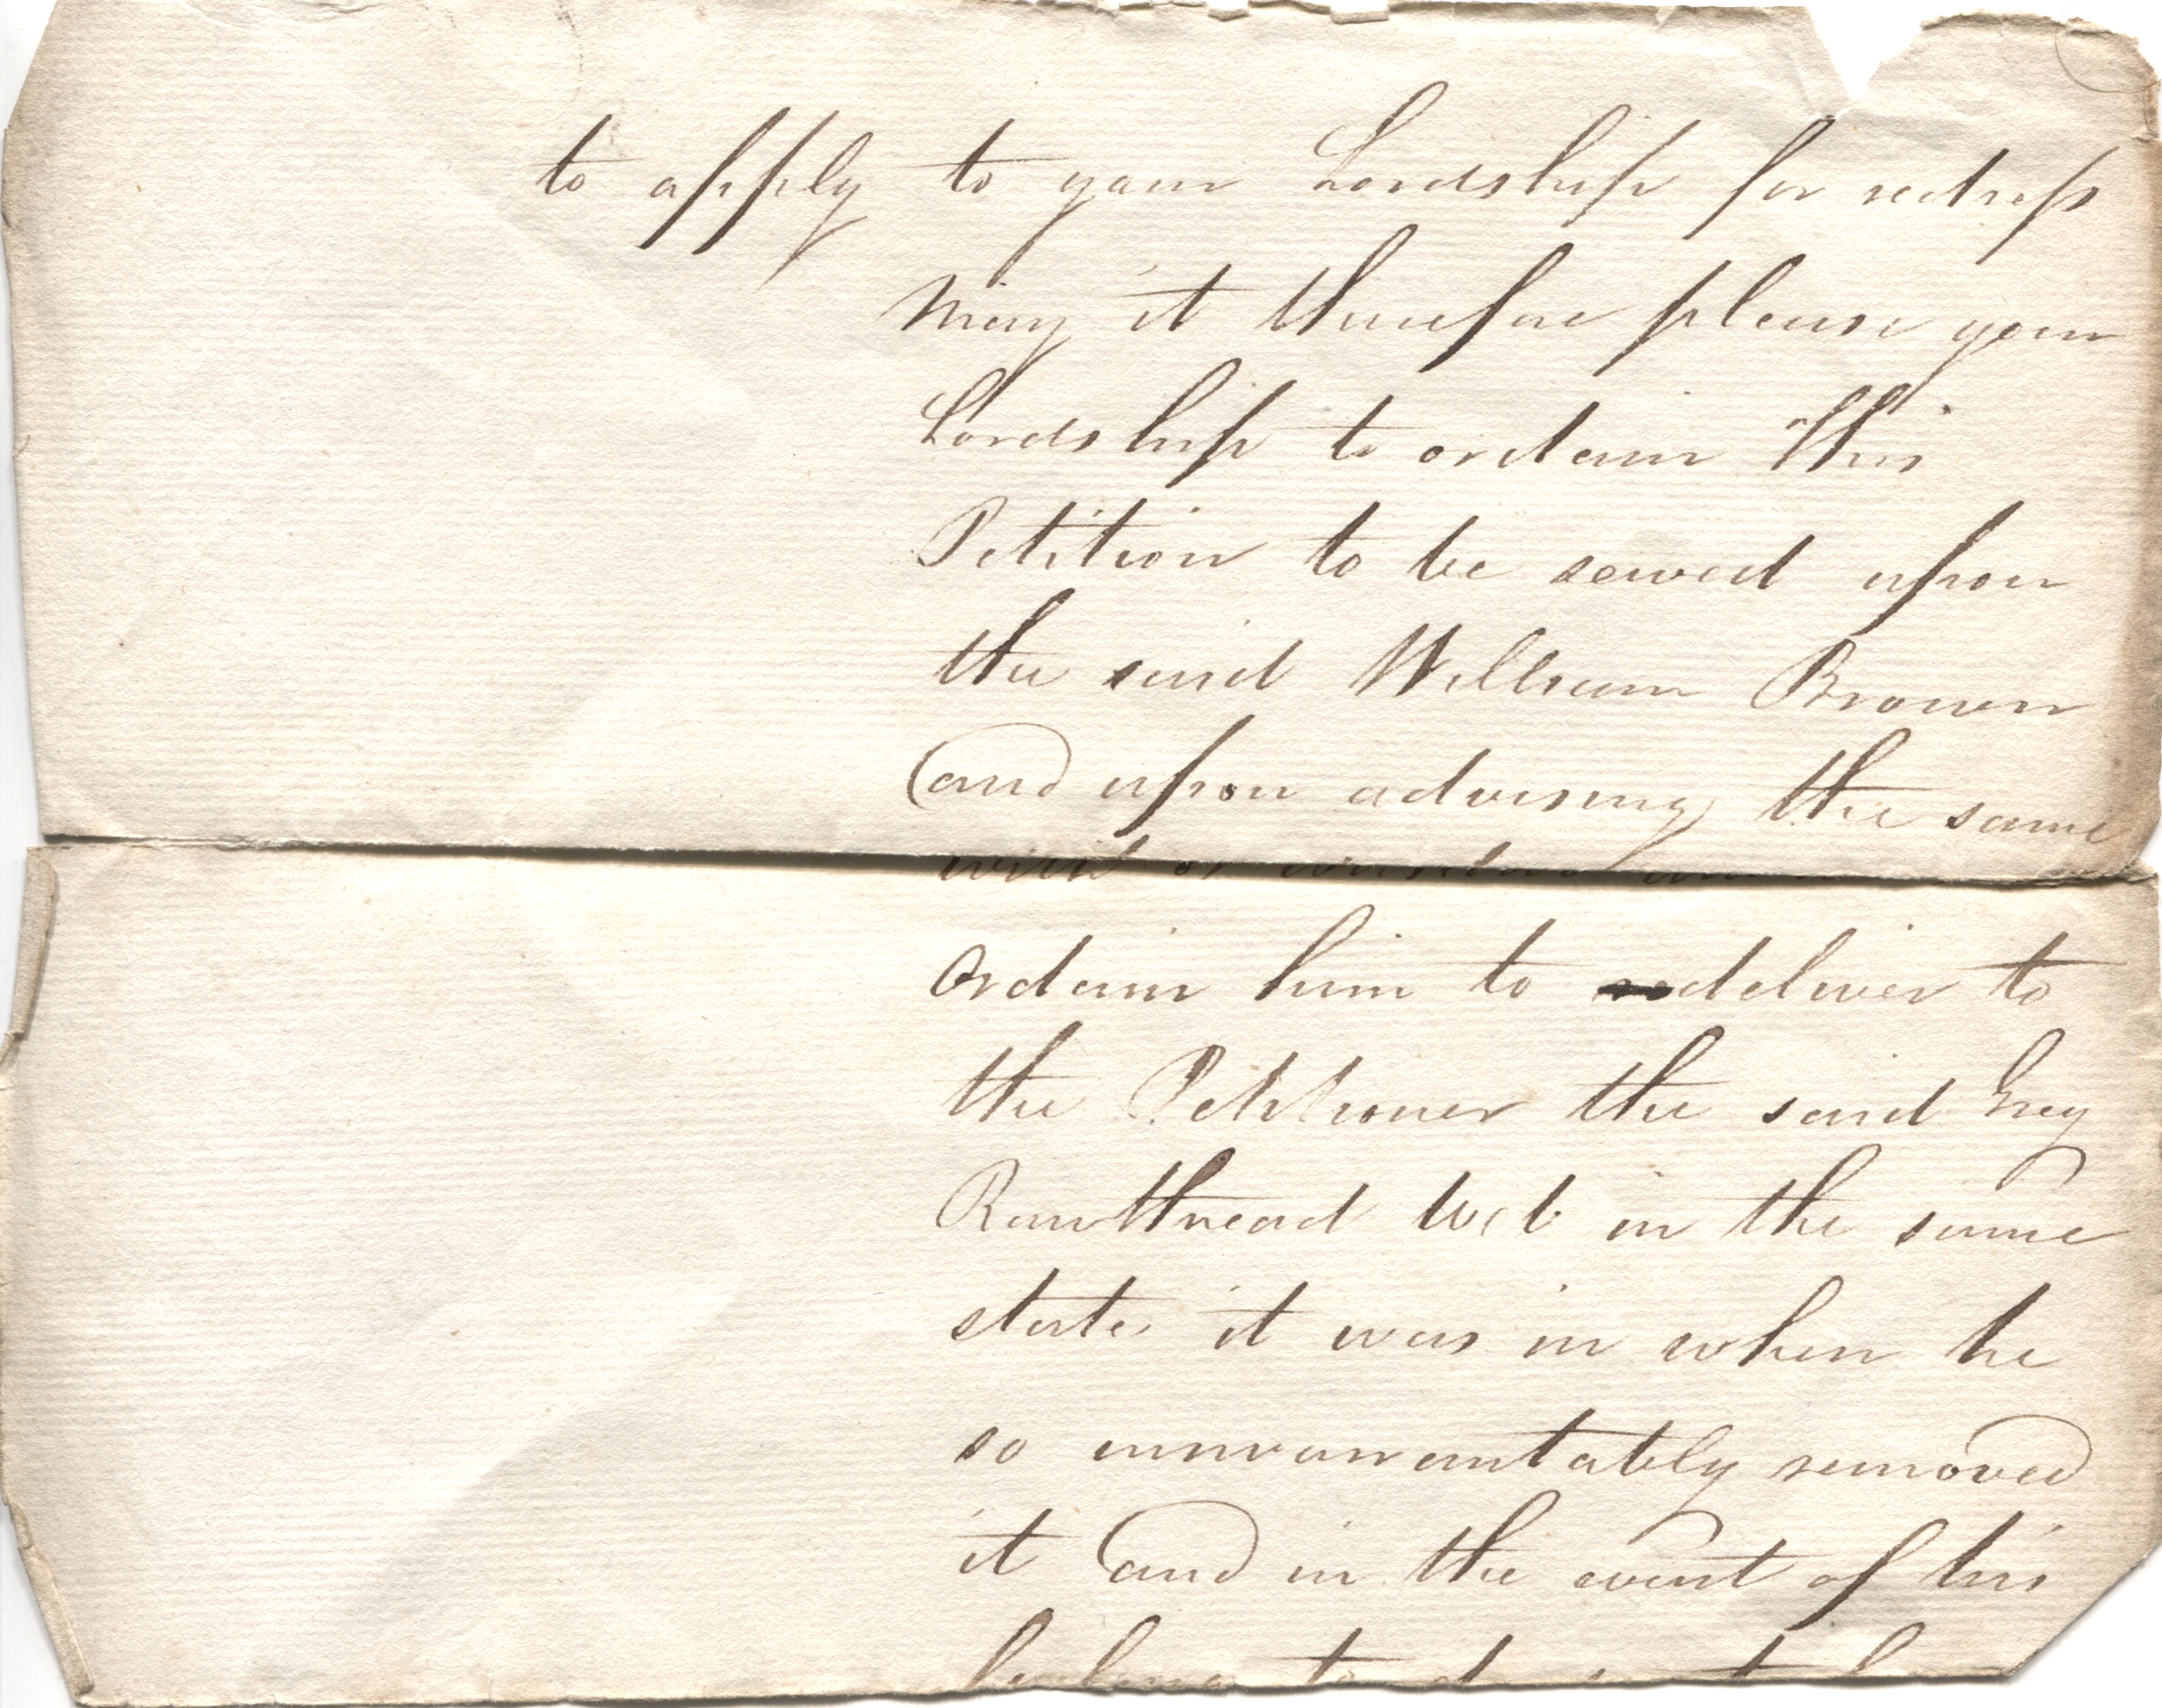 to apply to your Lordship for redress
May it therefore please your
Lordship to ordain this
Petition to be served upon
the said William Brown
and upon advising the same
with or without
Ordain him to deliver to
the Petitioner the said Grey
Rawthread Web in the same
state it was in when he
so unwarrantably removed
it and in the event of his
to do